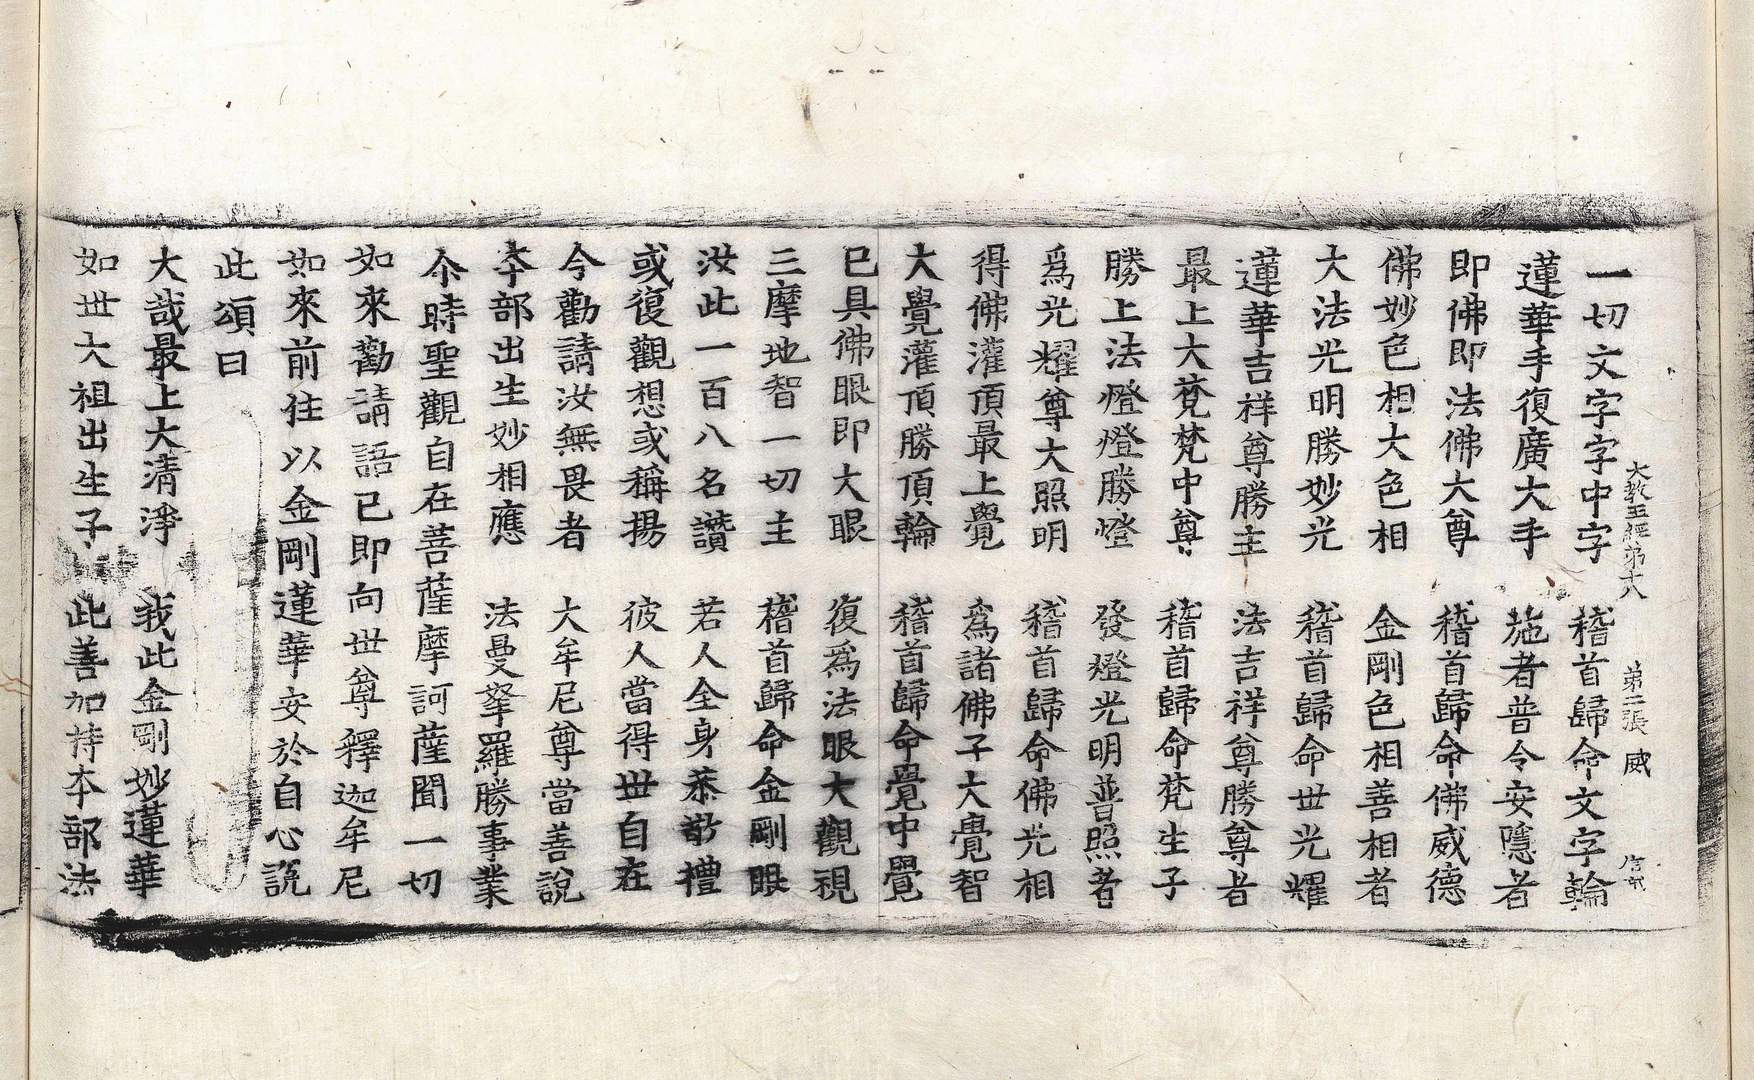 大教王經第十八 第二張 威
一切文字字中字 稽首歸命文字輪
蓮華手復廣大手 施者普令安隱者
即佛即法佛大尊 稽首歸命佛威德
佛妙色相大色相 金剛色相善相者
大法光明勝妙光 稽首歸命世光耀
蓮華吉祥尊勝主 法吉祥尊勝尊者
最上大梵梵中尊 稽首歸命梵生子
勝上法燈燈勝燈 發燈光明普照者
爲光耀尊大照明 稽首歸命佛光相
得佛灌頂最上覺 爲諸佛子大覺智
大覺灌頂勝頂輪 稽首歸命覺中覺
已具佛眼即大眼 復爲法眼大觀視
三摩地智一切主 稽首歸命金剛眼
汝此一百八名讚 若人全身恭敬禮
或復觀想或稱揚 彼人當得世自在
今勸請汝無畏者 大牟尼尊當善說
本部出生妙相應 法曼拏羅勝事業
尒時聖觀自在菩薩摩訶薩聞一切
如來勸請語已即向世尊釋迦牟尼
如來前住以金剛蓮華安於自心說
此頌曰
大哉最上大清淨 我此金剛妙蓮華
如世大祖出生子 此善加持本部法